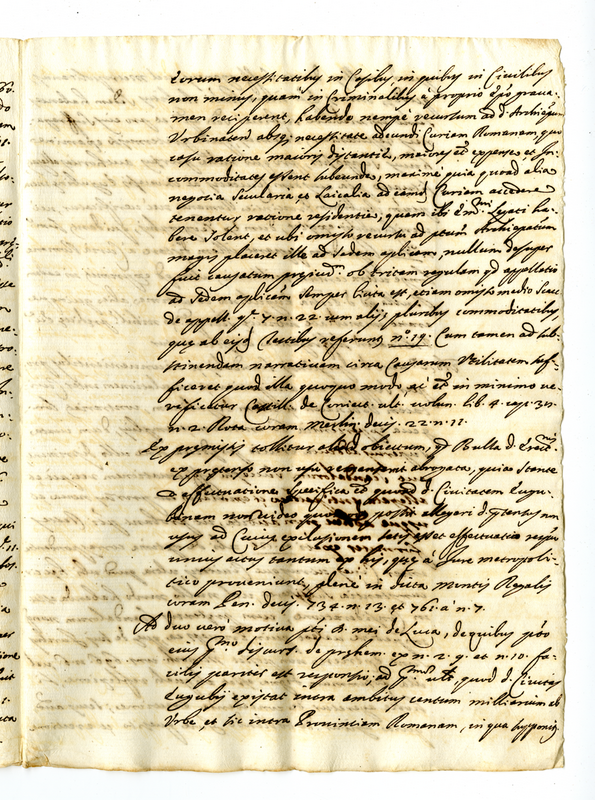 eorum necessitatibus in Casibus in quibus in Civilibus
non minus, quam in Criminalibus à proprio Epo grava-
men reciperent, habendo nempè recursum ad d. Archiepum
Urbinaten absq; necessitate adeundi Curiam Romanam, quo
casu ratione maioris distantiæ, maiores et expensæ et In-
commoditates essent subeundæ, maximè quia quoad alia
negotia Secularia et Laicalia ad eamd Curiam accedere
tenentur ratione residentiæ, quam ibi Emi Legati ha-
bere solent, et ubi omisso recursu ad ptum Archiepatum
magis placeret ille ad Sedem aplicam, nullum desuper
fuit causatum prejud. ob tritam regulam qd appellatio
ad Sedem aplicam semper licita est, etiam omisso medio Scac.
de appell. q. 7. n. 22. cum alijs pluribus commoditatibus
quæ ab eisd Testibus referunt n.º 19. Cum tamen ad sub-
stinendam narrativam circa Causarum Utilitatem suf-
ficeret quod illa quoquo modo ac et in minimo ve-
rificetur Castill. de Coniect. ult. volun. lib. 4. cap. 37.
n. 2. Rota coram Merlin. decis. 22. n. 11.
Ex præmissis tollitur obicium, qd Bulla d. Erect.
ex progressu non usu remanserit abrogata, quia stante
effectuatione specifica et quoad d. Civitatem Eugu-
binem non video quomodo possit allegari d. prætensus non
usus ad Cuius exclusionem satis esset effectuatio respu
unius actus tantum ex his, quæ à Jure metropoli-
tico proveniunt, plenè in dicta Montis Regalis
coram Pen. decis. 734. n. 13. et 761. à n. 7.
Ad duo verò motiva pti D. mei de Luca, de quibus pto
eius discurs. de præhem. ex n. 2. 9. et n. 10. fa-
cilis pariter est responsio; ad pmum quod d. Civitas
Eugubij existat intra ambitus centum milliarium ab
Urbe, et sic intra Provinciam Romanam, in qua supponit